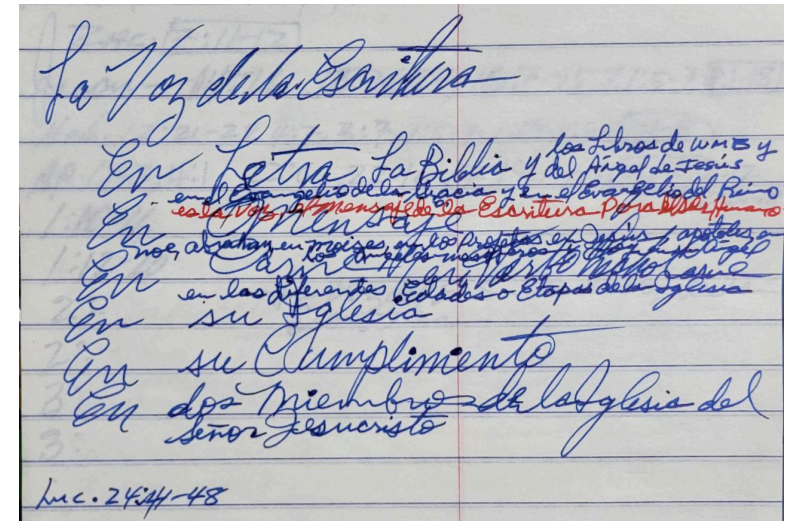 La Voz de la Escritura
En Letra La Biblia y los Libros de WMB y
del Ángel de Jesús
en el Evangelio de la Gracia y en el Evangelio del Reino
En Mensaje
es la Voz el mensaje de la Escritura Para el Ser Humano
noe, abraham, en moises, en los Profetas, en Jesús y apostoles, en
los Ángeles mensajeros
En Carne
en las diferentes Edades o Etapas de la Iglesia
En su Iglesia
En su Cumplimiento
En los Miembros de la Iglesia del
Señor Jesucristo
Luc. 24:44-48